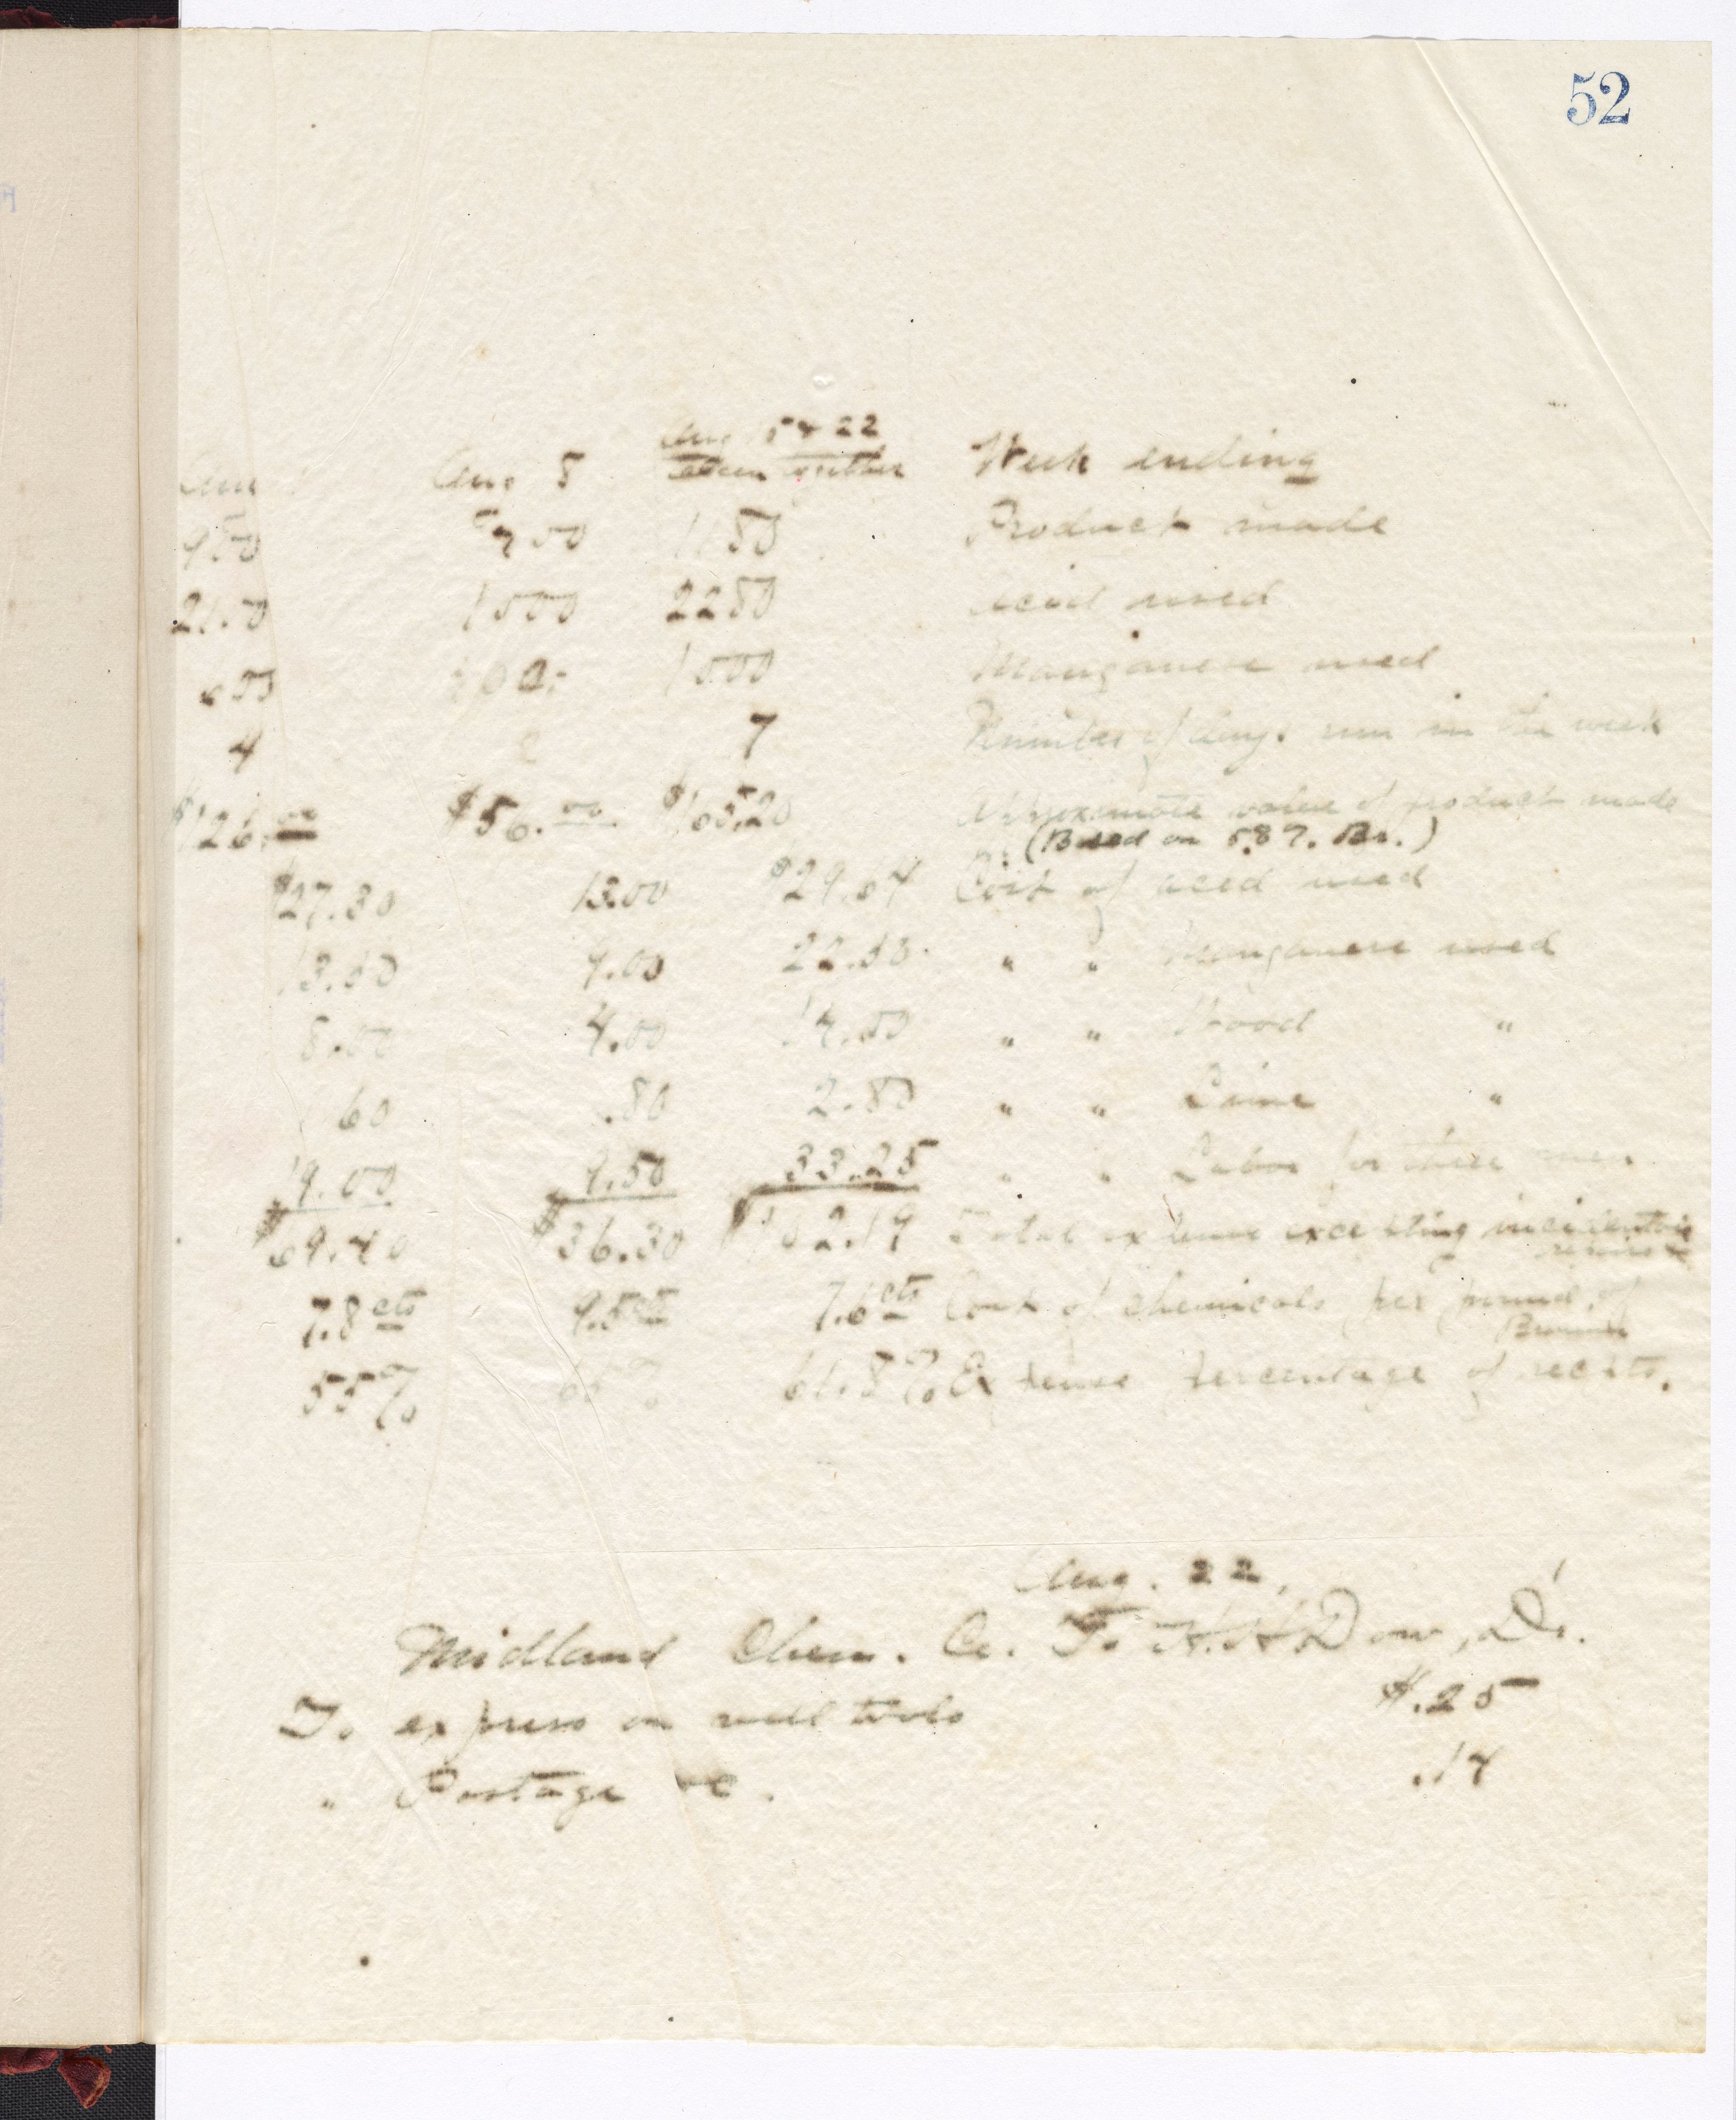 52
Aug 15 & 22
Aug 8 taken together Week ending
1180 Product made
2100 1000 2280 Acid used
1500 Manganese used
4 7 Number of days run in the week
$126.00 $56.00 $165.20 Approximate value of product made
(Based on 58 %. Br.)
$27.30 13.00 $29.64 Cost of acid used
13.50 9.00 22.50 " " Manganese used
8.00 4.00 14.00 " " Wood "
60 .80 2.80 " " Lime "
19.00 9.50 33.25 " " Labor for three men
$69.40 $36.30 $102.19 Total expense excepting incidentals
7.8 cts 9.5 cts 7.6 cts Cost of chemicals per pound of
Bromine
55% 65% 61.8% Expense percentage of recpts.
Aug. 22,
Midland Chem. Co. To H. H. Dow, Dr.
To express on well tools $.25
" Postage &c. .14